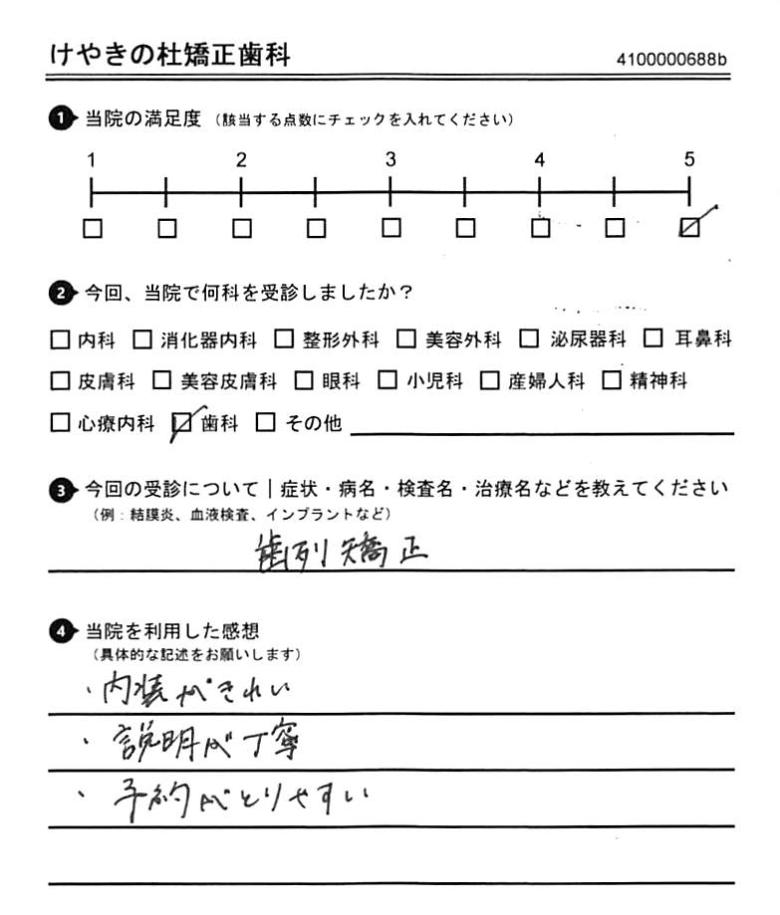 けやきの杜矯正歯科 4100000688b
1 当院の満足度 （該当する点数にチェックを入れてください）
1 2 3 4 5
□ □ □ □ □ □ □ □ ☑
2 今回、当院で何科を受診しましたか？
□ 内科 □ 消化器内科 □ 整形外科 □ 美容外科 □ 泌尿器科 □ 耳鼻科
□ 皮膚科 □ 美容皮膚科 □ 眼科 □ 小児科 □ 産婦人科 □ 精神科
□ 心療内科 ☑ 歯科 □ その他
3 今回の受診について｜症状・病名・検査名・治療名などを教えてください
（例：結膜炎、血液検査、インプラントなど）
歯列矯正
4 当院を利用した感想
（具体的な記述をお願いします）
・内装がきれい
・説明が丁寧
・予約がとりやすい